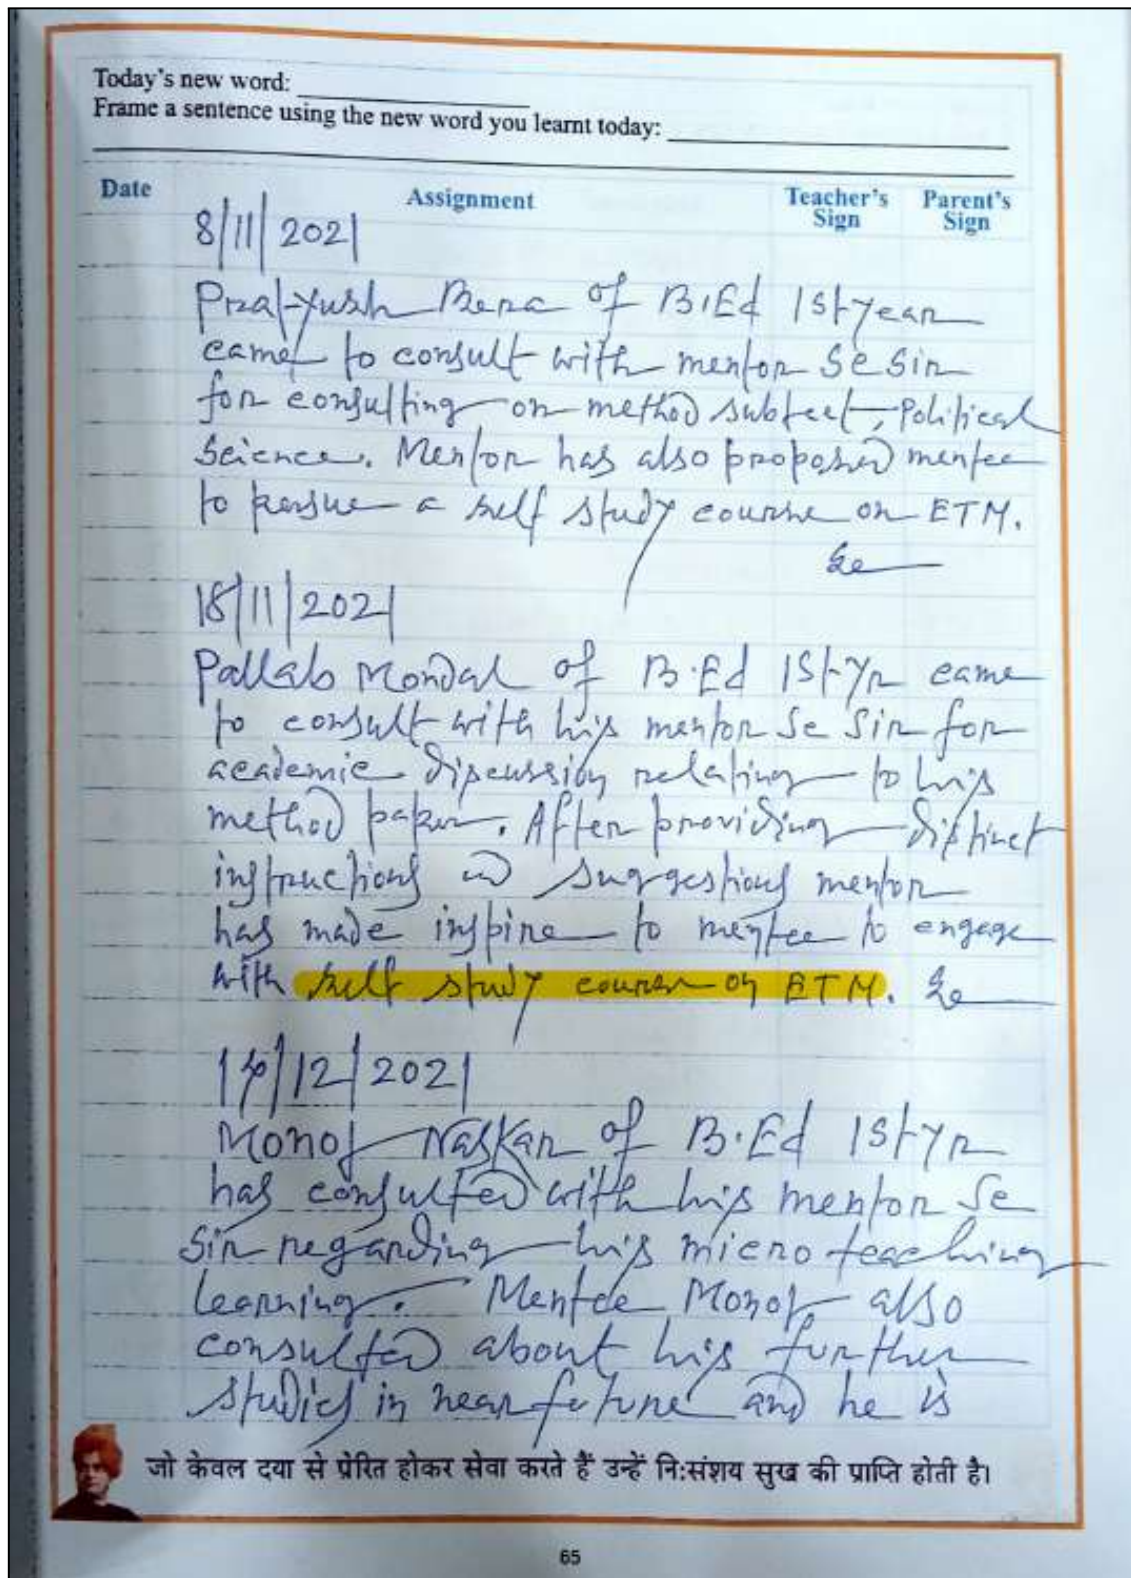 Today's new word:
Frame a sentence using the new word you learnt today:
Date Assignment Teacher's Sign Parent's Sign
8/11/2021
Pratyush Bera of B.Ed 1st year
came to consult with mentor Sc Sir
for consulting on method subject, Political
Science. Mentor has also proposed mentee
to persue a self study course on ETM.
18/11/2021
Pallab Mondal of B.Ed 1st yr came
to consult with his mentor Sc Sir for
academic discussion relating to his
method paper. After providing distinct
instructions and suggestions mentor
has made inspire to mentee to engage
with self study course on ETM.
/12/2021
Monoj Naskar of B.Ed 1st yr
has consulted with his mentor Sc
Sir regarding his micro teaching
learning. Mentee Monoj also
consulted about his further
studies in near future and he is
जो केवल दया से प्रेरित होकर सेवा करते हैं उन्हें नि:संशय सुख की प्राप्ति होती है।
65